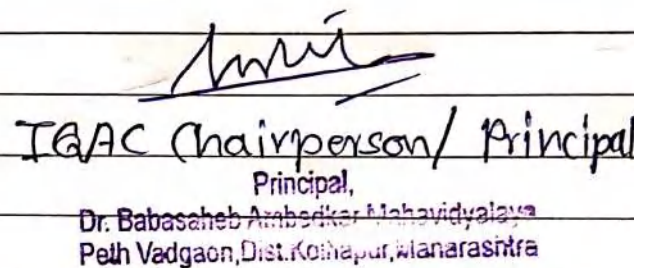 IQAC Chairperson/ Principal
Principal,
Dr. Babasaheb Ambedkar Mahavidyalaya
Peth Vadgaon,Dist.Kolhapur,Maharashtra